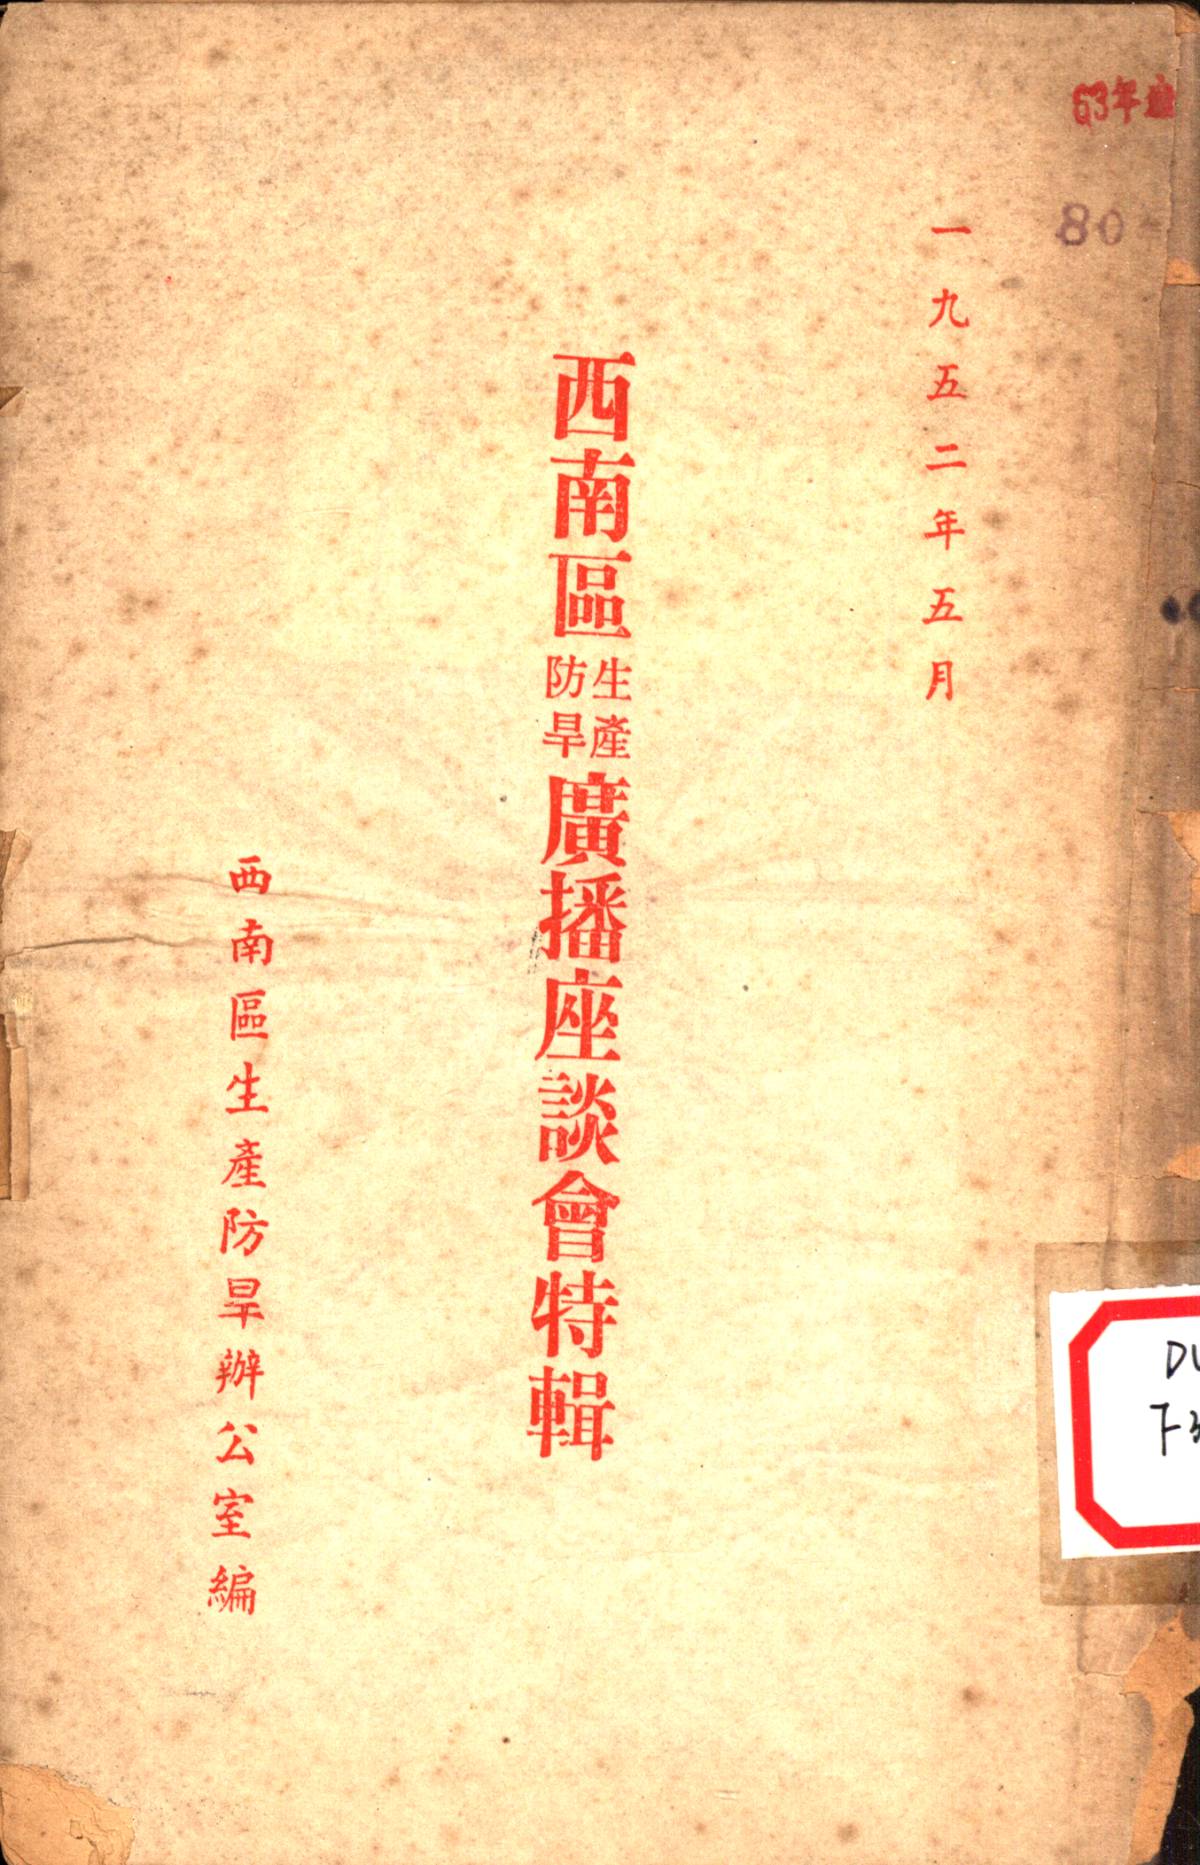 63年
80
一九五二年五月
西南區生產防旱廣播座談會特輯
西南區生產防旱辦公室編